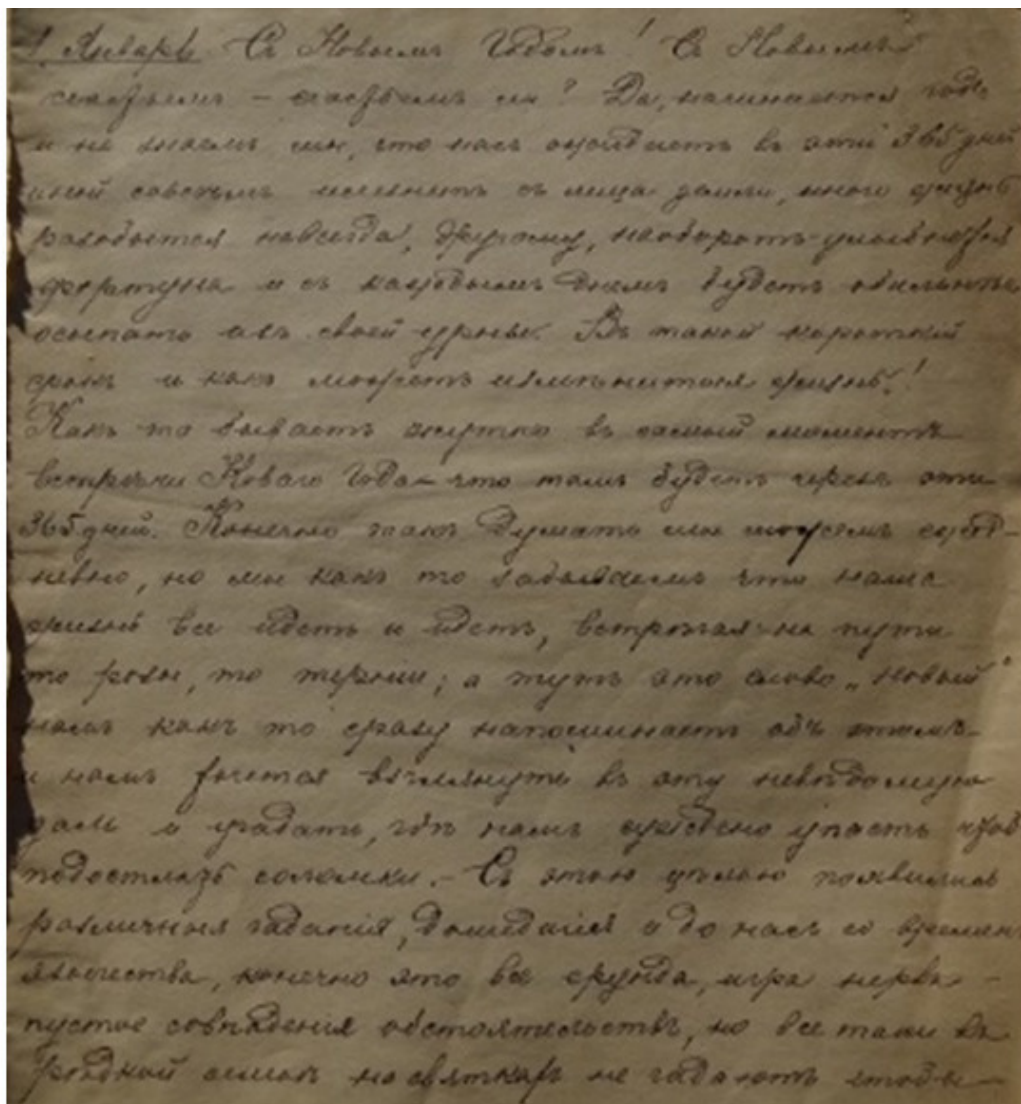 1 Январь Съ Новымъ Годомъ! Съ Новымъ
счастьемъ – счастьемъ ли? Да, начинается годъ
и не знаемъ мы, что насъ ожидаетъ въ эти 365 дней
иной совсѣмъ исчезнетъ съ лица земли, иного жизнь
разобьется навсегда, другому, наоборотъ – улыбнется
фортуна и съ каждымъ днемъ будетъ обильнѣе
осыпать изъ своей урны. Въ такой короткій
срокъ и какъ можетъ измѣниться жизнь!
Какъ то бываетъ жутко въ самый моментъ
встрѣчи Новаго Года – что тамъ будетъ черезъ эти
365 дней. Конечно такъ думать мы можемъ ежед-
невно, но мы какъ то забываемъ что наша
жизнь все идетъ и идетъ, встрѣчая на пути
то розы, то терніи; а тутъ это слово „Новый“
намъ какъ то сразу напоминаетъ объ этомъ –
и намъ хочется взглянуть въ эту невѣдомую
даль и угадать, гдѣ намъ суждено упасть чтоб
подостлать соломки. – Съ этою цѣлью появились
различныя гаданія, дошедшія и до насъ со времен
язычества, конечно это все ерунда, игра нервъ –
пустое совпаденія обстоятельствъ, но все таки въ
рѣдкой семьѣ на святкахъ не гадаютъ чтобы –